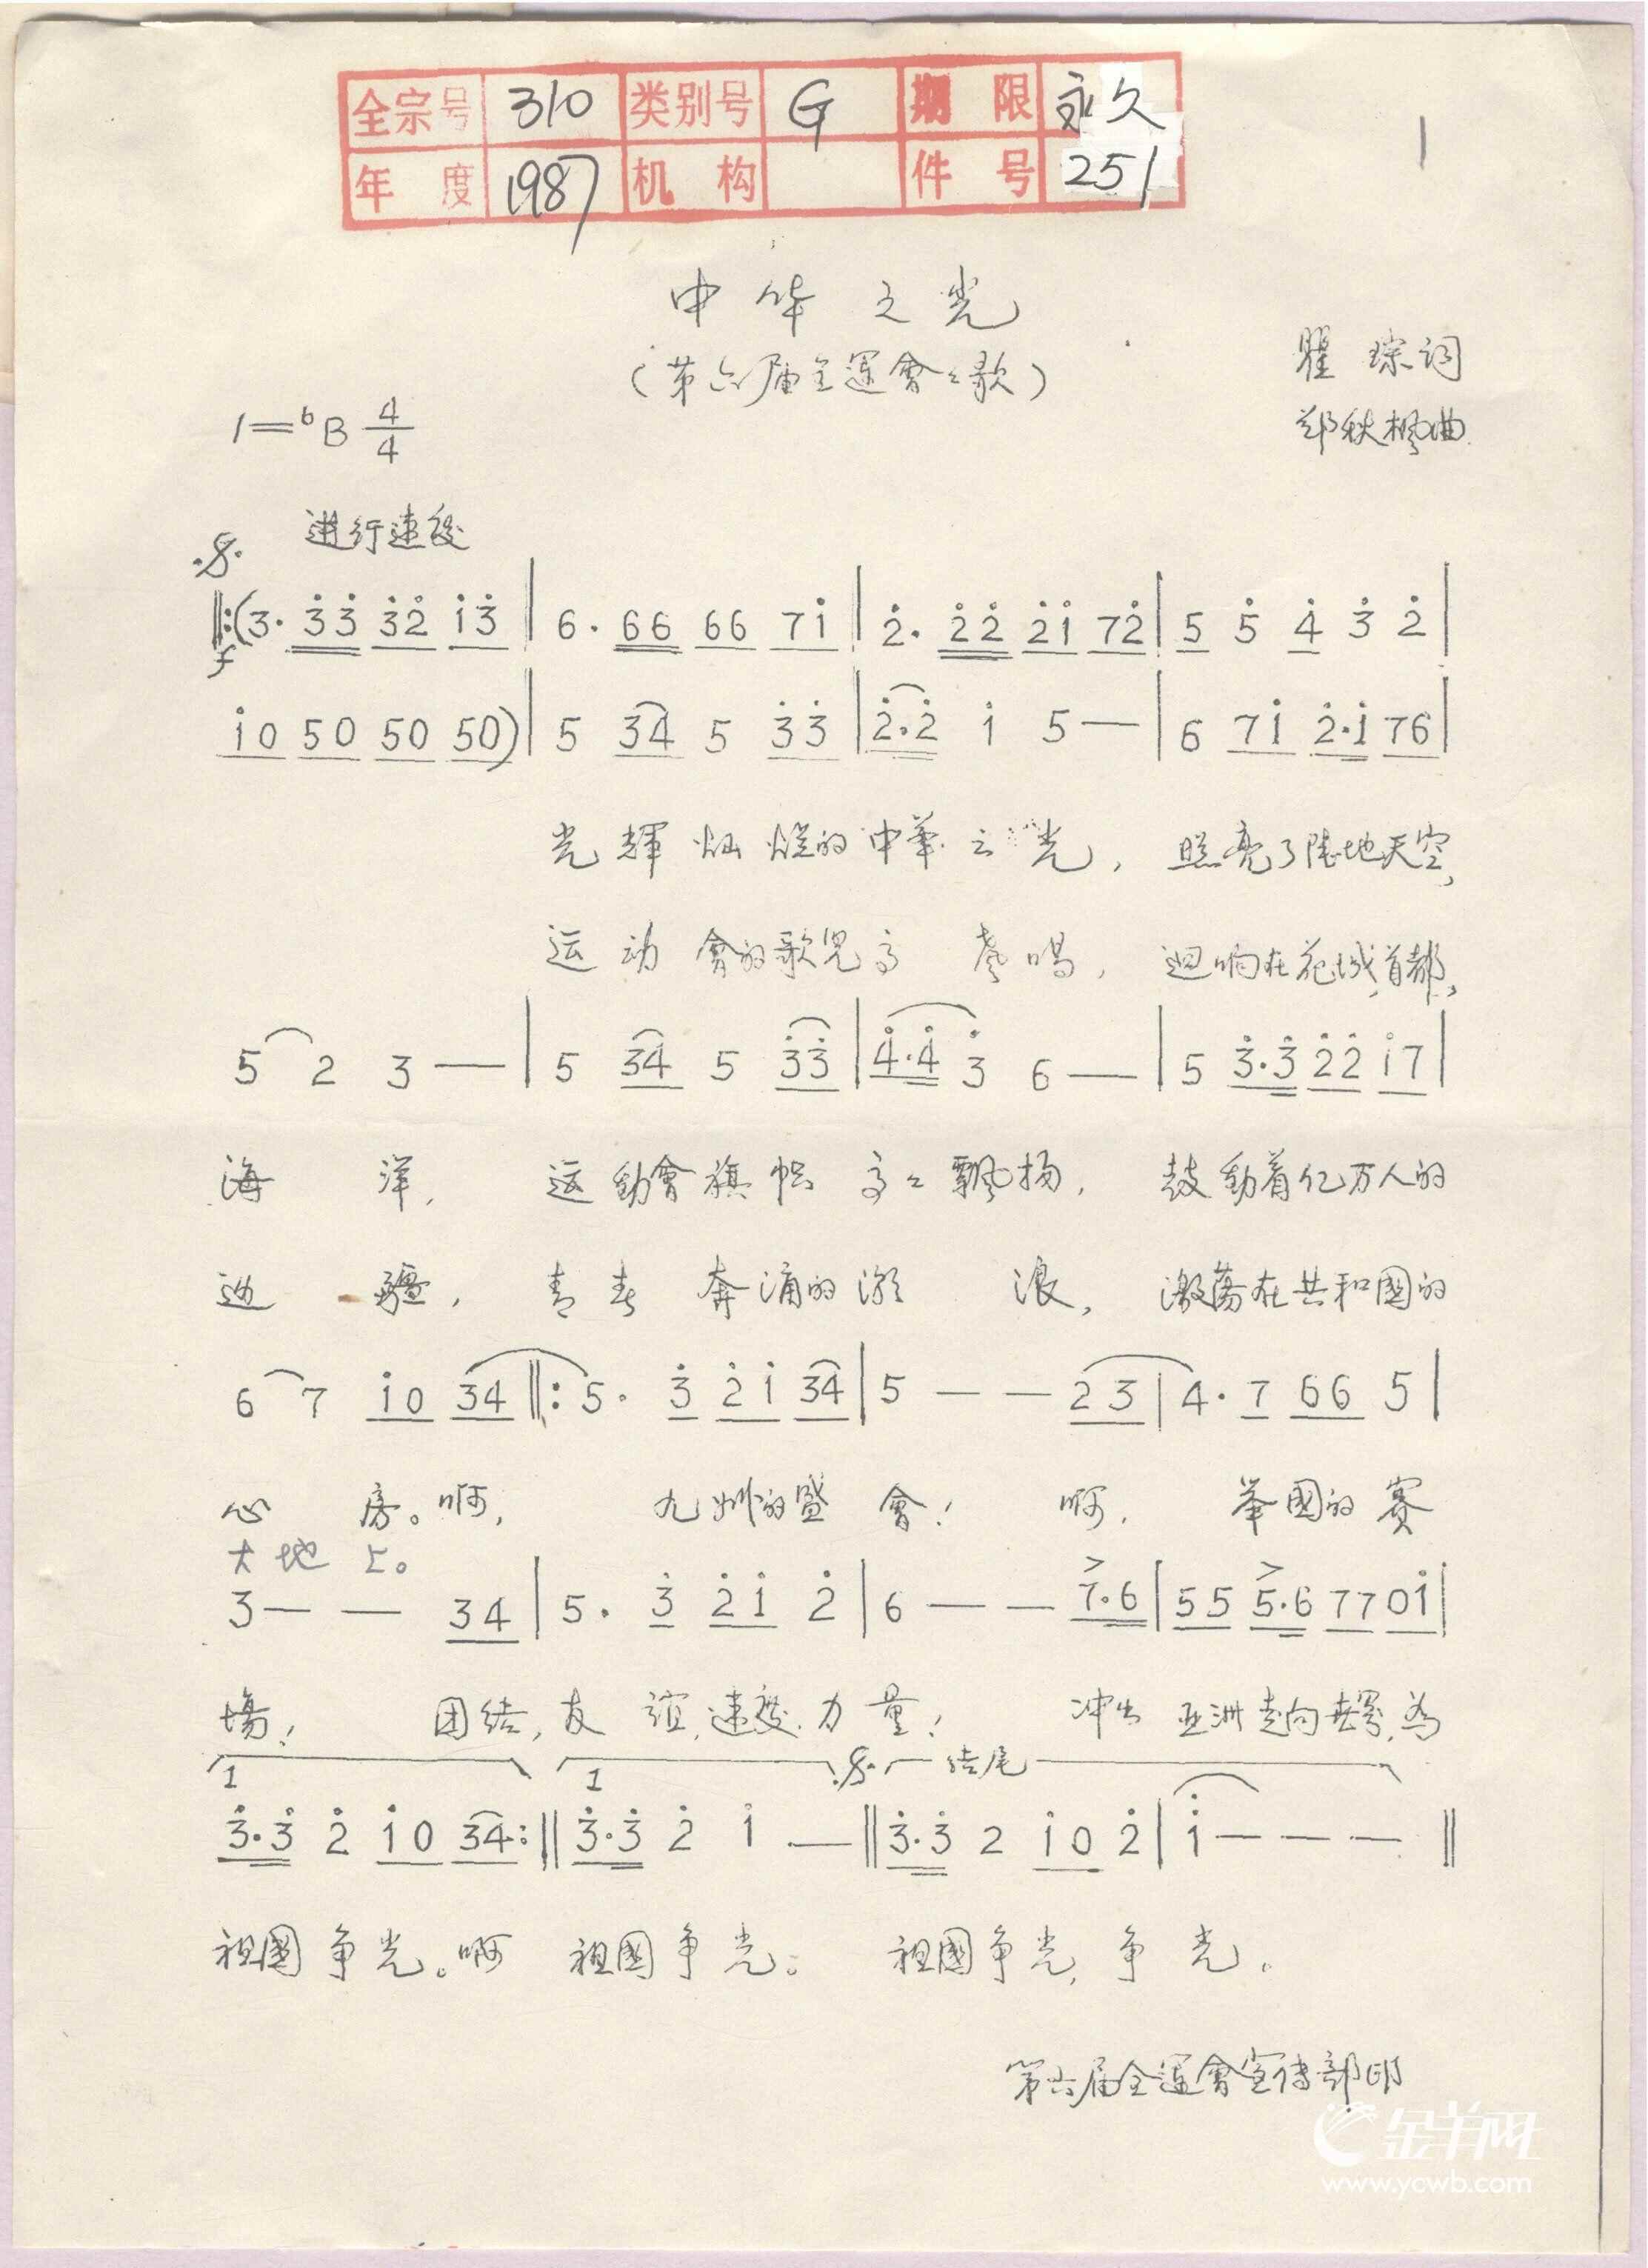 全宗号 310 类别号 G 期限 永久
年度 1987 机构 件号 251
1
中华之光
(第六届全運會会歌)
瞿琮词
1=♭B 4/4
郑秋枫曲
进行速度
‖:(3· 3̇3̇ 3̇2̇ 1̇3̇ | 6· 66 66 71̇ | 2̇· 2̇2̇ 2̇1̇ 72̇ | 5 5̇ 4̇ 3̇ 2̇ |
f
1̇0 50 50 50) | 5 34 5 3̇3̇ | 2̇·2̇ 1̇ 5 — | 6 71̇ 2̇·1̇ 76 |
光輝灿烂的中華之光, 照亮了陸地天空,
运动會的歌児高声唱, 迴响在花城首都,
5 2 3 — | 5 34 5 3̇3̇ | 4̇·4̇ 3̇ 6 — | 5 3̇·3̇ 2̇2̇ 1̇7 |
海洋, 运動會旗帜高々飘扬, 鼓動着亿万人的
边疆, 青春奔涌的潮浪, 激荡在共和國的
6 7 1̇0 34 ‖: 5· 3̇ 2̇1̇ 34 | 5 — — 23 | 4· 7 66 5 |
心房。啊, 九州的盛會! 啊, 举國的赛
大地上。
3 — — 34 | 5· 3̇ 2̇1̇ 2̇ | 6 — — 7·6 | 55 5·6 77 01̇ |
場! 团结,友谊,速度,力量! 冲出亚洲走向世界,为
1 1 结尾
3̇·3̇ 2̇ 1̇0 34 :‖ 3̇·3̇ 2̇ 1̇ — ‖ 3̇·3̇ 2 1̇0 2̇ | 1̇ — — — ‖
祖國争光。啊 祖國争光。 祖國争光,争光。
第六届全運會宣传部印
金羊网
www.ycwb.com